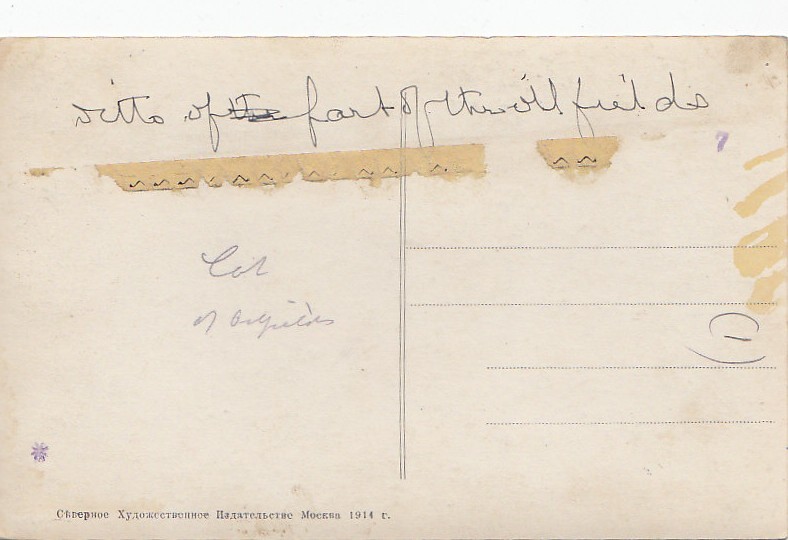 ditto of the part of the oil fields
7
of Oilfields
(1)
Сѣверное Художественное Издательство Москва 1914 г.